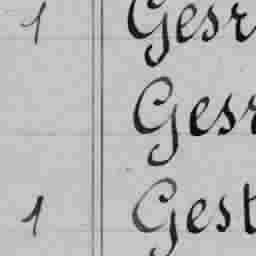 1 Gesr
Gesr
1 Gest